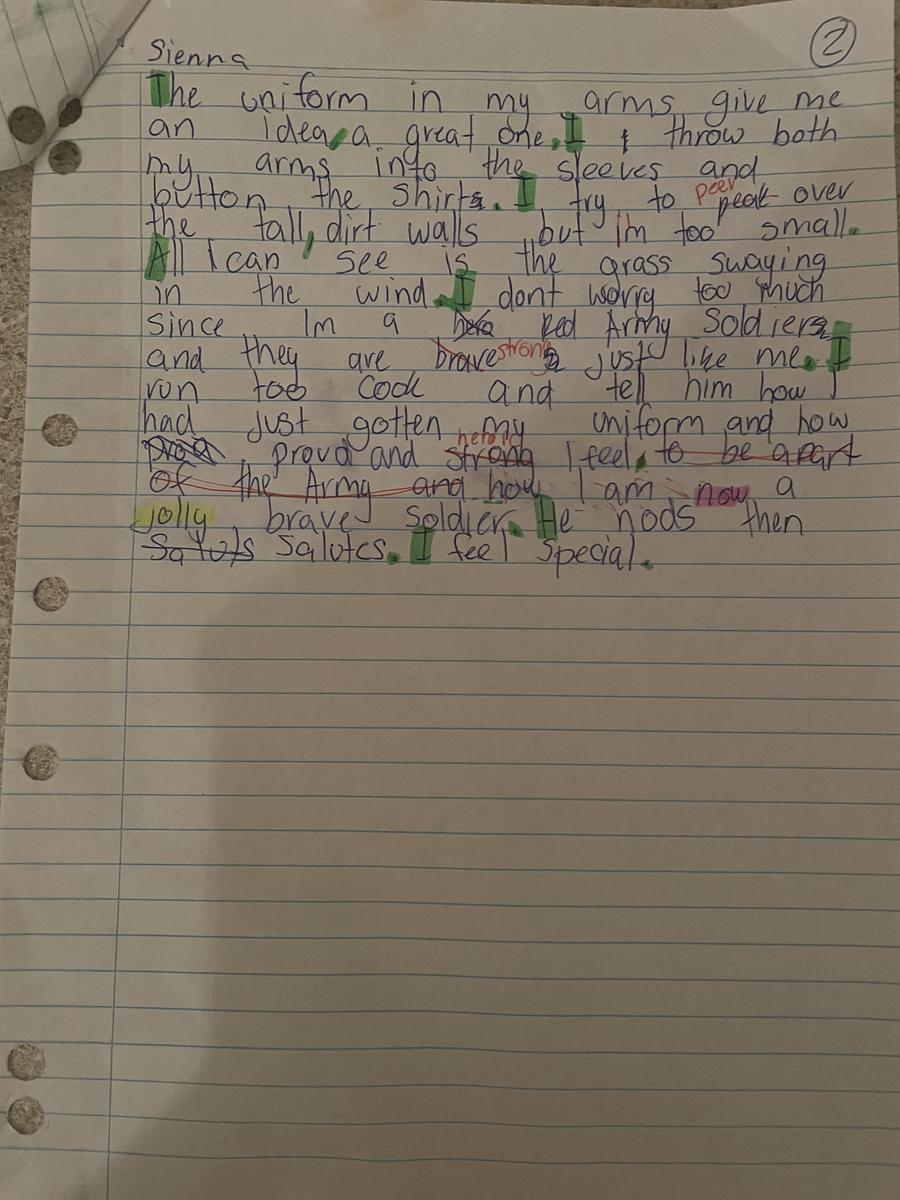 Sienna
2
The uniform in my arms give me
an idea, a great one, I & throw both
my arms into the sleeves and
button the shirts. I try to peer peak over
the tall, dirt walls but im too small.
All I can see is the grass swaying
in the wind. I dont worry too much
since Im a Red Army Soldiers
and they are brave strong just like me. I
run too Cook and tell him how I
had just gotten my uniform and how
proud and heroic strong I feel. to be apart
of the Army and how I am now a
jolly brave soldier. He nods then
Saluts salutes. I feel special.